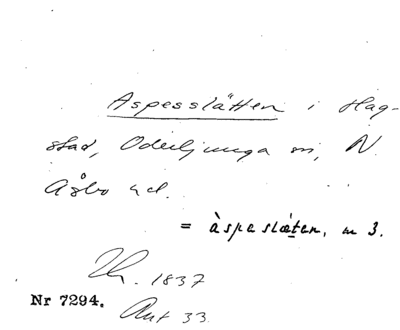 Aspesslätten i Hag-
stad, Oderljunga sn, N.
Åsbo hd.
= àspaslǽten, m 3.
Uh. 1837
Nr 7294. Ant 33.